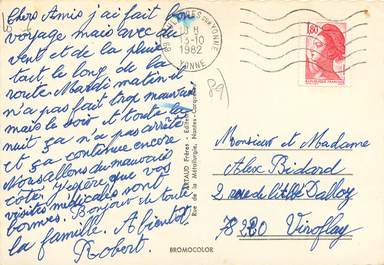 Chers Amis j'ai fait bon
voyage mais avec du
vent et de la pluie
tout le long de la
route Mardi matin il
n'a pas fait trop mauvais
mais le soir et toute la
nuit ça n'a pas arrêté
et ça continue encore
Nous allons du mauvais
côté j'espère que vos
visites médicales sont
bonnes. Bonjour de toute
la famille. A bientôt,
Robert.
89
YONNE
13-10
1982
YONNE
1,80
89
ARTAUD Frères - Editeurs
Rue de la Métallurgie, Nantes-Carquefou
Monsieur et Madame
Alex Bidard
2 rue de
78220 Viroflay
BROMOCOLOR